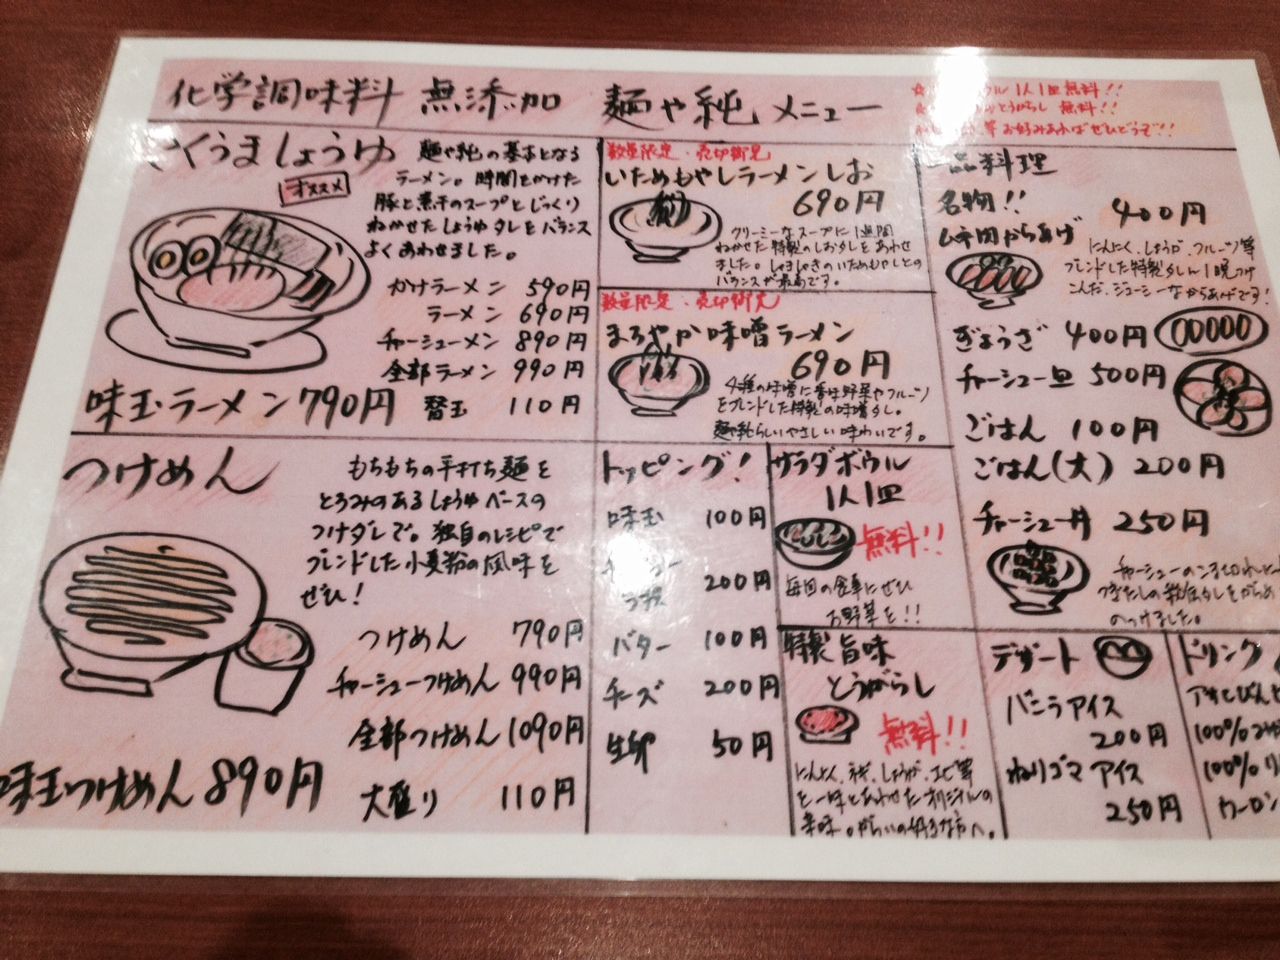 化学調味料 無添加 麺や純 メニュー
1人1皿 無料!!
とうがらし 無料!!
等 お好みあればぜひどうぞ!!
くうましょうゆ
オススメ
麺や純の基本となる
ラーメン。時間をかけた
豚と煮干のスープとじっくり
ねかせたしょうゆダレをバランス
よくあわせました。
かけラーメン 590円
ラーメン 690円
チャーシューメン 890円
全部ラーメン 990円
味玉ラーメン 790円
替玉 110円
つけめん
もちもちの平打ち麺を
とろみのあるしょうゆベースの
つけダレで。独自のレシピで
ブレンドした小麦粉の風味を
ぜひ!
つけめん 790円
チャーシューつけめん 990円
全部つけめん 1090円
味玉つけめん 890円
大盛り 110円
数量限定・売切御免
いためもやしラーメンしお
690円
クリーミーなスープに1週間
ねかせた特製のしおダレをあわせ
ました。しゃきしゃきのいためもやしとの
バランスが最高です。
数量限定・売切御免
まろやか味噌ラーメン
690円
4種の味噌に香味野菜やフルーツ
をブレンドした特製の味噌ダレ。
麺や純らしいやさしい味わいです。
トッピング!
味玉 100円
チャーシュー
200円
バター 100円
チーズ 200円
生卵 50円
サラダボウル
1人1皿
無料!!
毎回の食事にぜひ
お野菜を!!
特製旨味
とうがらし
無料!!
にんにく、ネギ、しょうが、エビ等
と一味とあわせたオリジナルの
辛味。からいの好きな方へ。
一品料理
名物!! 400円
からあげ
にんにく、しょうが、フルーツ等
ブレンドした特製ダレに1晩つけ
こんだ、ジューシーなからあげです!
ぎょうざ 400円
チャーシュー皿 500円
ごはん 100円
ごはん(大) 200円
チャーシュー丼 250円
チャーシューの
をからめ
のっけました。
デザート
バニラアイス
200円
ねりゴマアイス
250円
ドリンク
アサヒびん
100%
100%
ウーロン